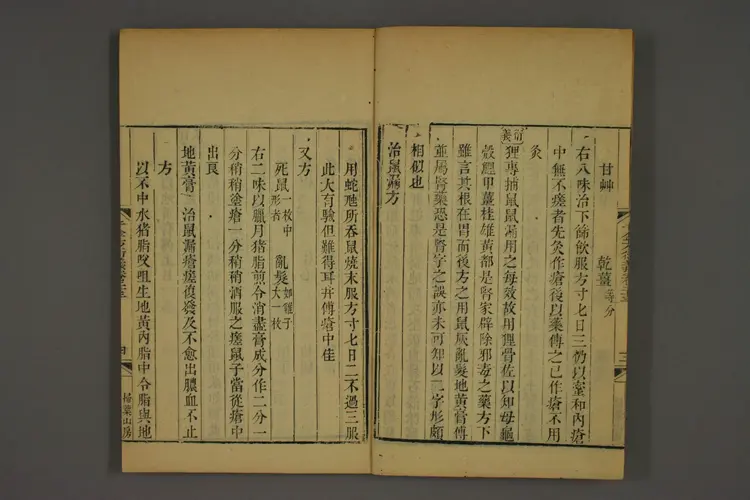 甘艸 乾薑等分
右八味治下篩飲服方寸七日三仍以蜜和內瘡
中無不瘥者先灸作瘡後以藥傅之已作瘡不用
灸
衍義
狸專捕鼠鼠漏用之每效故用狸骨佐以知母龜
殼鯉甲薑桂雄黃都是腎家辟除邪毒之藥方下
雖言其根在胃而後方之用鼠灰亂髮地黃膏傅
並屬腎藥恐是腎字之誤亦未可知以二字形頗
相似也
治鼠漏方
用蛇虺所吞鼠燒末服方寸七日二不過三服
此大有驗但難得耳并傅瘡中佳
又方
死鼠一枚中形者 亂髮如雞子大一枚
右二味以臘月猪脂煎令消盡膏成分作二分一
分稍稍塗瘡一分稍稍酒服之瘥鼠子當從瘡中
出良
地黃膏 治鼠漏瘡瘥復發及不愈出膿血不止
方
以不中水猪脂㕮咀生地黃內脂中令脂與地
掃葉山房